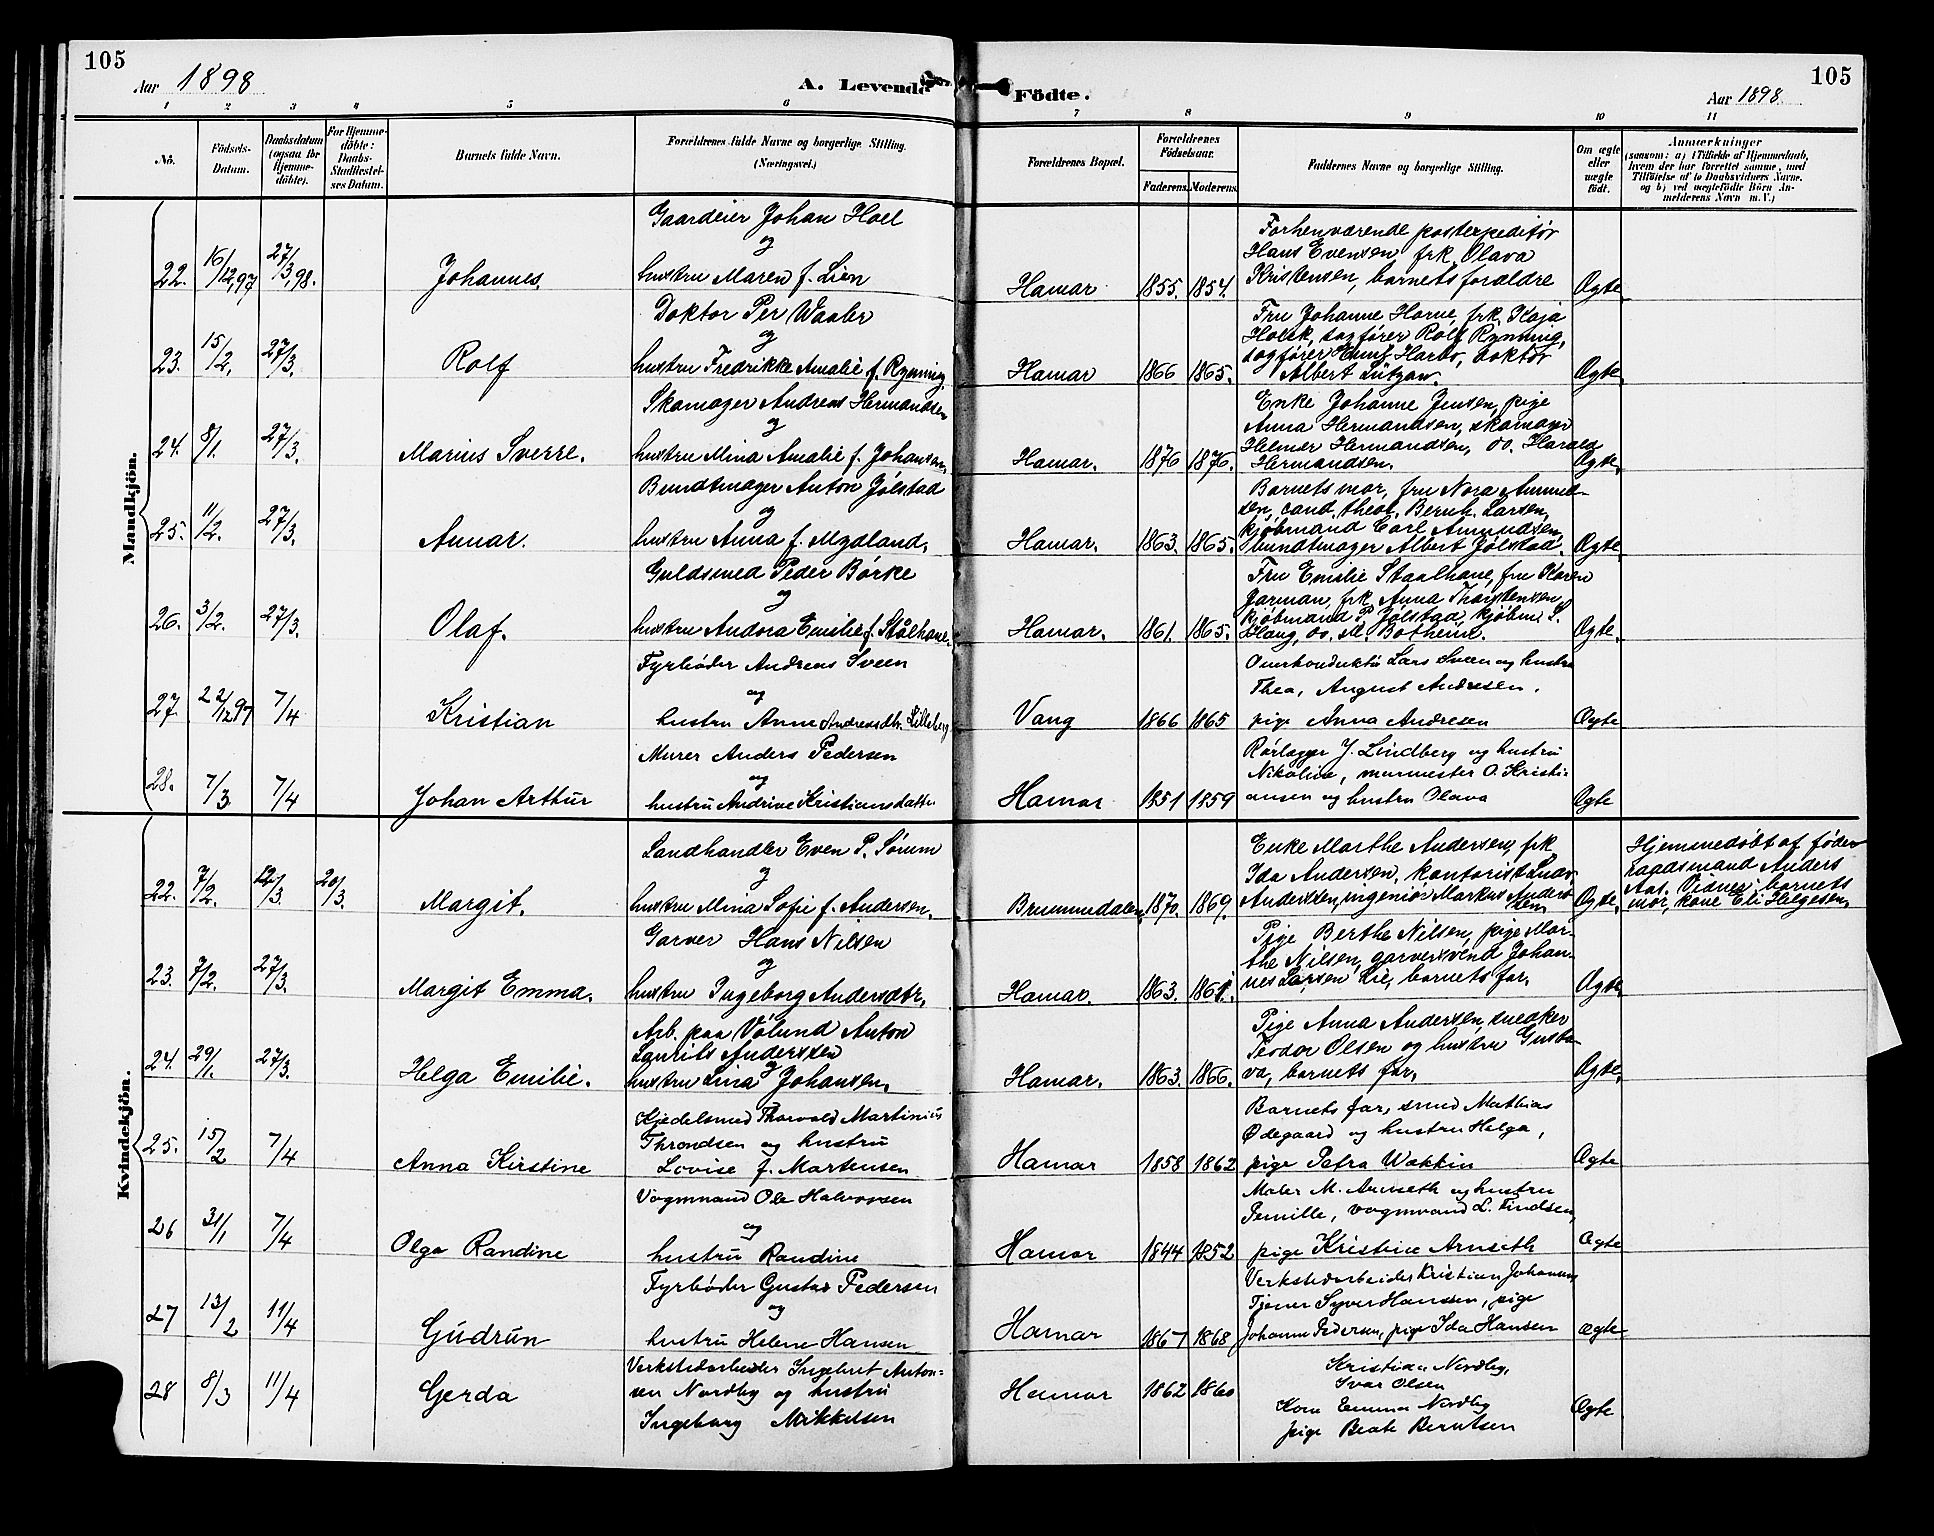 105
Aar 1898
A. Levende Födte.
105
Aar 1898.
1 2 3 4 5 6 7 8 9 10 11
No.
Födsels-Datum.
Daabsdatum (ogsaa for Hjemme-döbte).
For Hjemme-döbte: Daabs-Stadfæstel-ses Datum.
Barnets fulde Navn.
Forældrenes fulde Navne og borgerlige Stilling.
(Næringsvei.)
Forældrenes Bopæl.
Forældrenes Födselsaar.
Faderens. Moderens.
Faddernes Navne og borgerlige Stilling.
Om ægte eller uægte født.
Anmærkninger
(saasom: a) i Tilfælde af Hjemmedaab, hvem der har forrettet samme, med Tilföielse af to Daabsvidners Navne, og b) ved uægtefödte Börn An-melderens Navn m. V.)
Mandkjön.
22. 16/12,97 27/3,98. Johannes.
Gaardeier Johan Hoel
og
hustru Maren f. Lien
Hamar 1855. 1854.
Forhenværende postexpeditör
Hans Evensen, frk. Olava
Kristensen, barnets forældre
Ægte
23. 15/2. 27/3. Rolf
Doktor Per Waaler
og
hustru Fredrikke Amalie f. Rynning
Hamar 1866 1865.
Fru Johanne Horne, frk. Kaja
Holck, sagfører Rolf Rynning,
sagfører Harbo, doktor
Albert Lützow.
Ægte
24. 8/1. 27/3. Marius Sverre.
Skomager Andreas Hermandsen
og
hustru Mina Amalie f. Johansen,
Hamar. 1876 1876.
Enke Johanne Jensen, pige
Anna Hermandsen, skomager
Helmer Hermandsen, do. Harald
Hermandsen.
Ægte
25. 11/2. 27/3. Annar.
Bundtmager Anton Jølstad
og
hustru Anna f. Mydland,
Hamar. 1863. 1865.
Barnets mor, fru Nora Amund-
sen, cand. theol. Bernh. Larsen,
kjøbmand Carl Amundsen,
bundtmager Albert Jølstad.
Ægte
26. 3/2. 27/3. Olaf.
Guldsmed Peder Börke
og
hustru Andora Emilie f. Stålhane
Hamar. 1861. 1865.
Fru Emilie Staalhane, fru Karen
Jarman, frk. Anna Thorstensen,
kjøbmand P. Jølstad, kjøbm. S.
Haug, do. Bothcim.
Ægte.
27. 22/12 97 7/4 Kristian
Fyrbøder Andreas Sveen
og
hustru Anne Andreasdtr. Lilleberg
Vang 1866 1865
Overkonduktör Lars Sveen og hustru
Thea, August Andresen.
pige Anna Andresen
Ægte
28. 7/3 7/4 Johan Arthur
Murer Anders Pedersen
og
hustru Andrine Kristiansdatter
Hamar 1851 1859
Rörlægger J. Lindberg og hustru
Nikoline, murmester O. Kristi-
ansen og hustru Olava
Ægte
Kvindekjön.
22. 7/2. 12/3. 20/3. Margit.
Landhandler Even P. Sörum
og
hustru Mina Sofie f. Andersen.
Brummedalen. 1870. 1869.
Enke Marthe Andersen, frk
Ida Andersen, kontorist Ludv.
Anderssen, ingeniör Markus Anders-
sen
Ægte.
Hjemmedöbt af föder
raadsmand Anders
Aas. Vidner: barnets
mor, kone Eli Helgesen,
23. 7/2. 27/3. Margit Emma.
Garver Hans Nilsen
og
hustru Ingeborg Andersdtr,
Hamar. 1863.
Pige Berthe Nilsen, pige Mar-
the Nilsen, garversvend Johan-
nes Larsen Lie, barnets far.
Ægte
24. 29/1. 27/3. Helga Emilie.
Arb. paa Vølund Anton
Laurits Anderssen
og
hustru Lina Johansen,
Hamar. 1863. 1866.
Pige Anna Andersen, snedker
Teodor Olsen og hustru Gusta-
va, barnets far.
Ægte.
25. 15/2 7/4 Anna Kirstine
Kjedelsmed Thorvald Martinius
Throndsen og hustru
Lovise f. Martensen
Hamar 1858 1862
Barnets far, smed Mathias
Ødegaard og hustru Helga,
pige Petra Wakkin
Ægte
26 31/1 7/4 Olga Randine
Vogmand Ole Halvorsen
og
hustru Randine
Hamar 1844 1852
Maler M. Arnseth og hustru
Pernille, vogmand L. Findsen,
pige Kristine Arnseth
Ægte
27 13/2 11/4 Gudrun
Fyrbøder Gustav Pedersen
og
hustru Helene Hansen
Hamar 1867 1868
Verkstedarbeider Kristian Johansen
Tjener Syver Hansen, pige
Johanne Pedersen, pige Ida Hansen
ægte
28 8/3 11/4 Gerda
Verkstedarbeider Ingebret Anton-
sen Nordby og hustru
Ingeborg Mikkelsen
Hamar 1862 1860
Kristian Nordby,
Ivar Olsen
Kone Emma Nordby
pige Beate Berntsen
Ægte